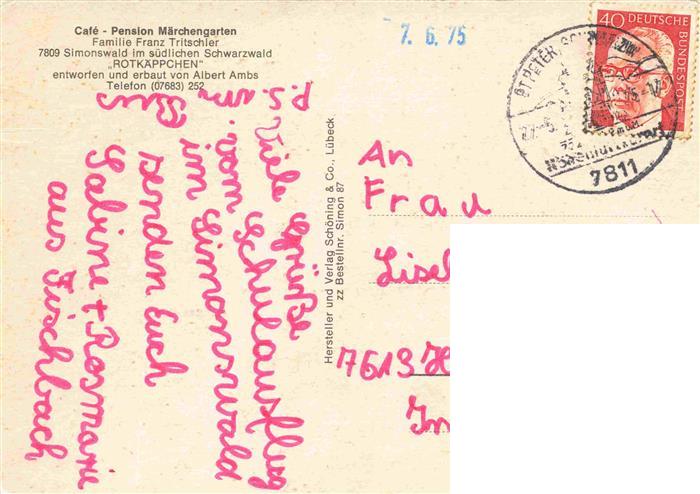 Café - Pension Märchengarten
Familie Franz Tritschler
7809 Simonswald im südlichen Schwarzwald
„ROTKÄPPCHEN"
entworfen und erbaut von Albert Ambs
Telefon (07683) 252
7. 6. 75
40 DEUTSCHE
BUNDESPOST
ST PETER, SCHWARZW
7811
Viele Grüße
vom Schulausflug
im Simonswald
senden Euch
Sabine + Rosmarie
aus Fischbach
Hersteller und Verlag Schöning & Co., Lübeck
zz Bestellnr. Simon 87
An
Frau
Lisel
7613 H